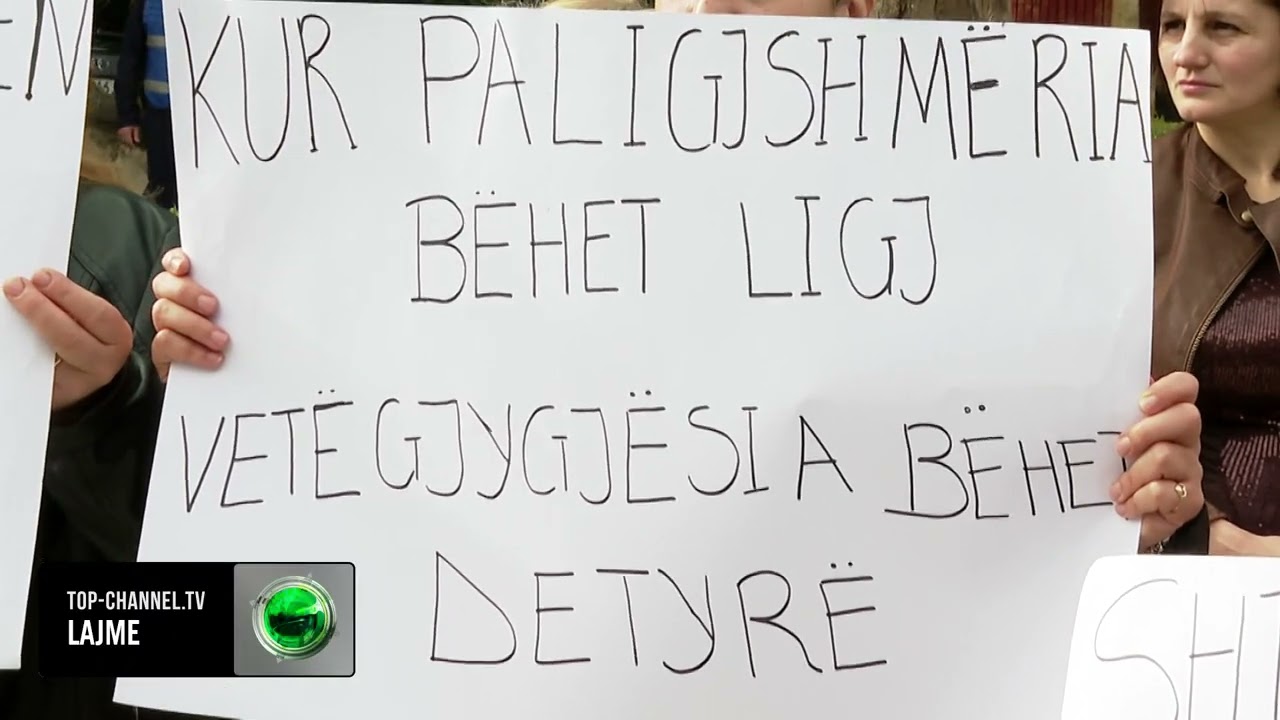 EN
KUR PALIGJSHMËRIA
BËHET LIGJ
VETËGJYGJËSIA BËHET
DETYRË
SHT
TOP-CHANNEL.TV
LAJME